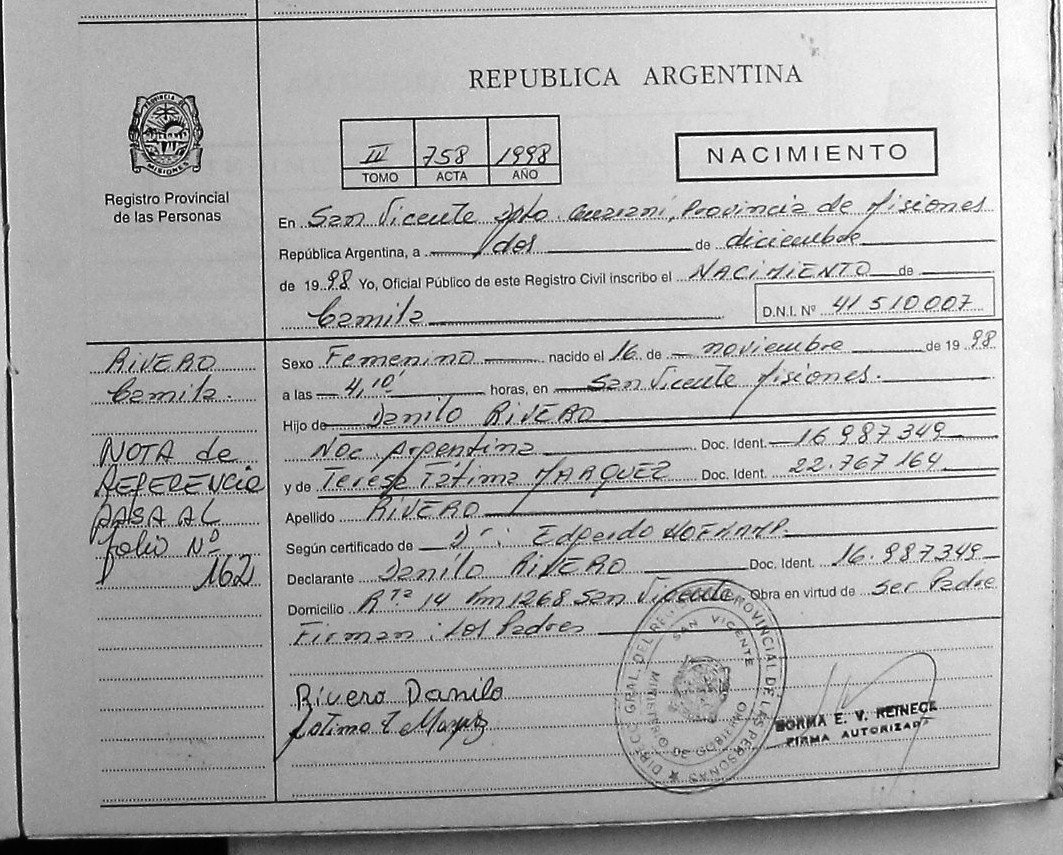 REPUBLICA ARGENTINA
PROVINCIA DE
MISIONES
Registro Provincial
de las Personas
III 758 1998
TOMO ACTA AÑO
NACIMIENTO
En San Vicente Dpto. Guaraní, Provincia de Misiones
República Argentina, a dos de diciembre
de 1998 Yo, Oficial Público de este Registro Civil inscribo el NACIMIENTO de
Camila D.N.I. Nº 41510007
RIVERO
Camila.
NOTA de
REFERENCIA
PASA AL
folio Nº
162
Sexo Femenino nacido el 16 de noviembre de 1998
a las 4,10 horas, en San Vicente Misiones.
Hijo de Danilo RIVERO
Nac. Argentina Doc. Ident. 16.987.349
y de Teresa Fátima MARQUEZ Doc. Ident. 22.767.164
Apellido RIVERO
Según certificado de Dr:
Declarante Danilo RIVERO Doc. Ident. 16.987.349
Domicilio Rta 14 Km 1268 San Vicente Obra en virtud de ser Padre
Firman: los Padres
Rivero Danilo
Fatima T Marquez
DIRECC. GRAL. DEL REG. PROVINCIAL DE LAS PERSONAS
SAN VICENTE
MINISTERIO DE GOBIERNO
NORMA E. V. REINECK
FIRMA AUTORIZADA